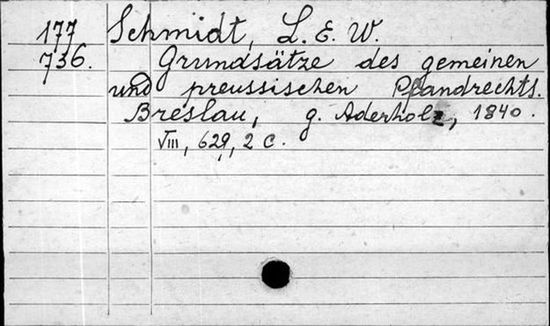 177 Schmidt, L. E. W.
736. Grundsätze des gemeinen
und preussischen Pfandrechts.
Breslau, g. Aderholz, 1840.
VIII, 629, 2 c.